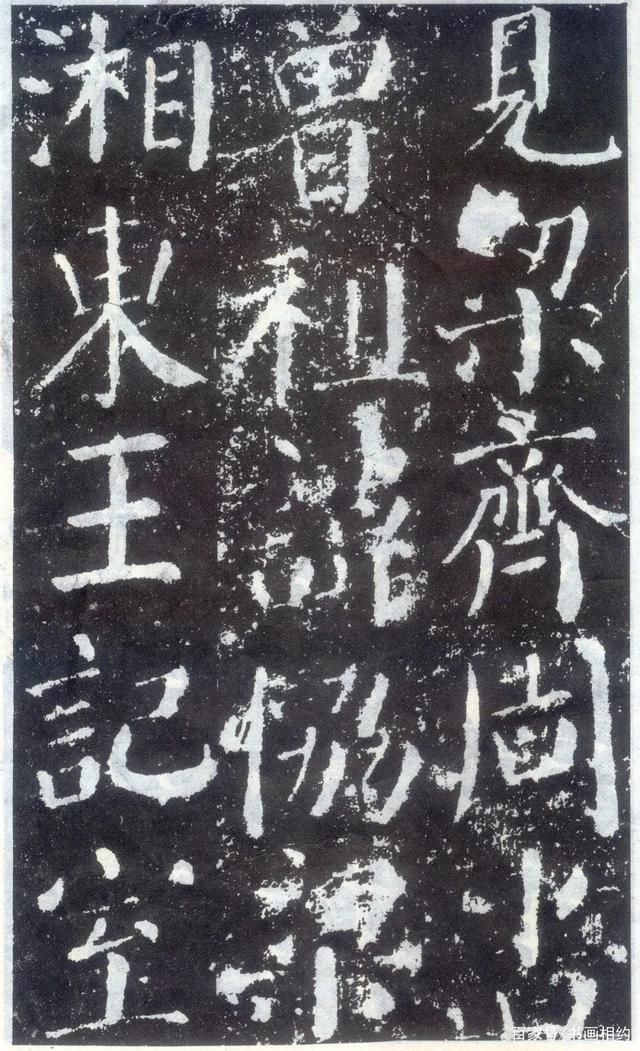 見梁齊周
曾祖諱恊梁
湘東王記室
百家号/书画相约